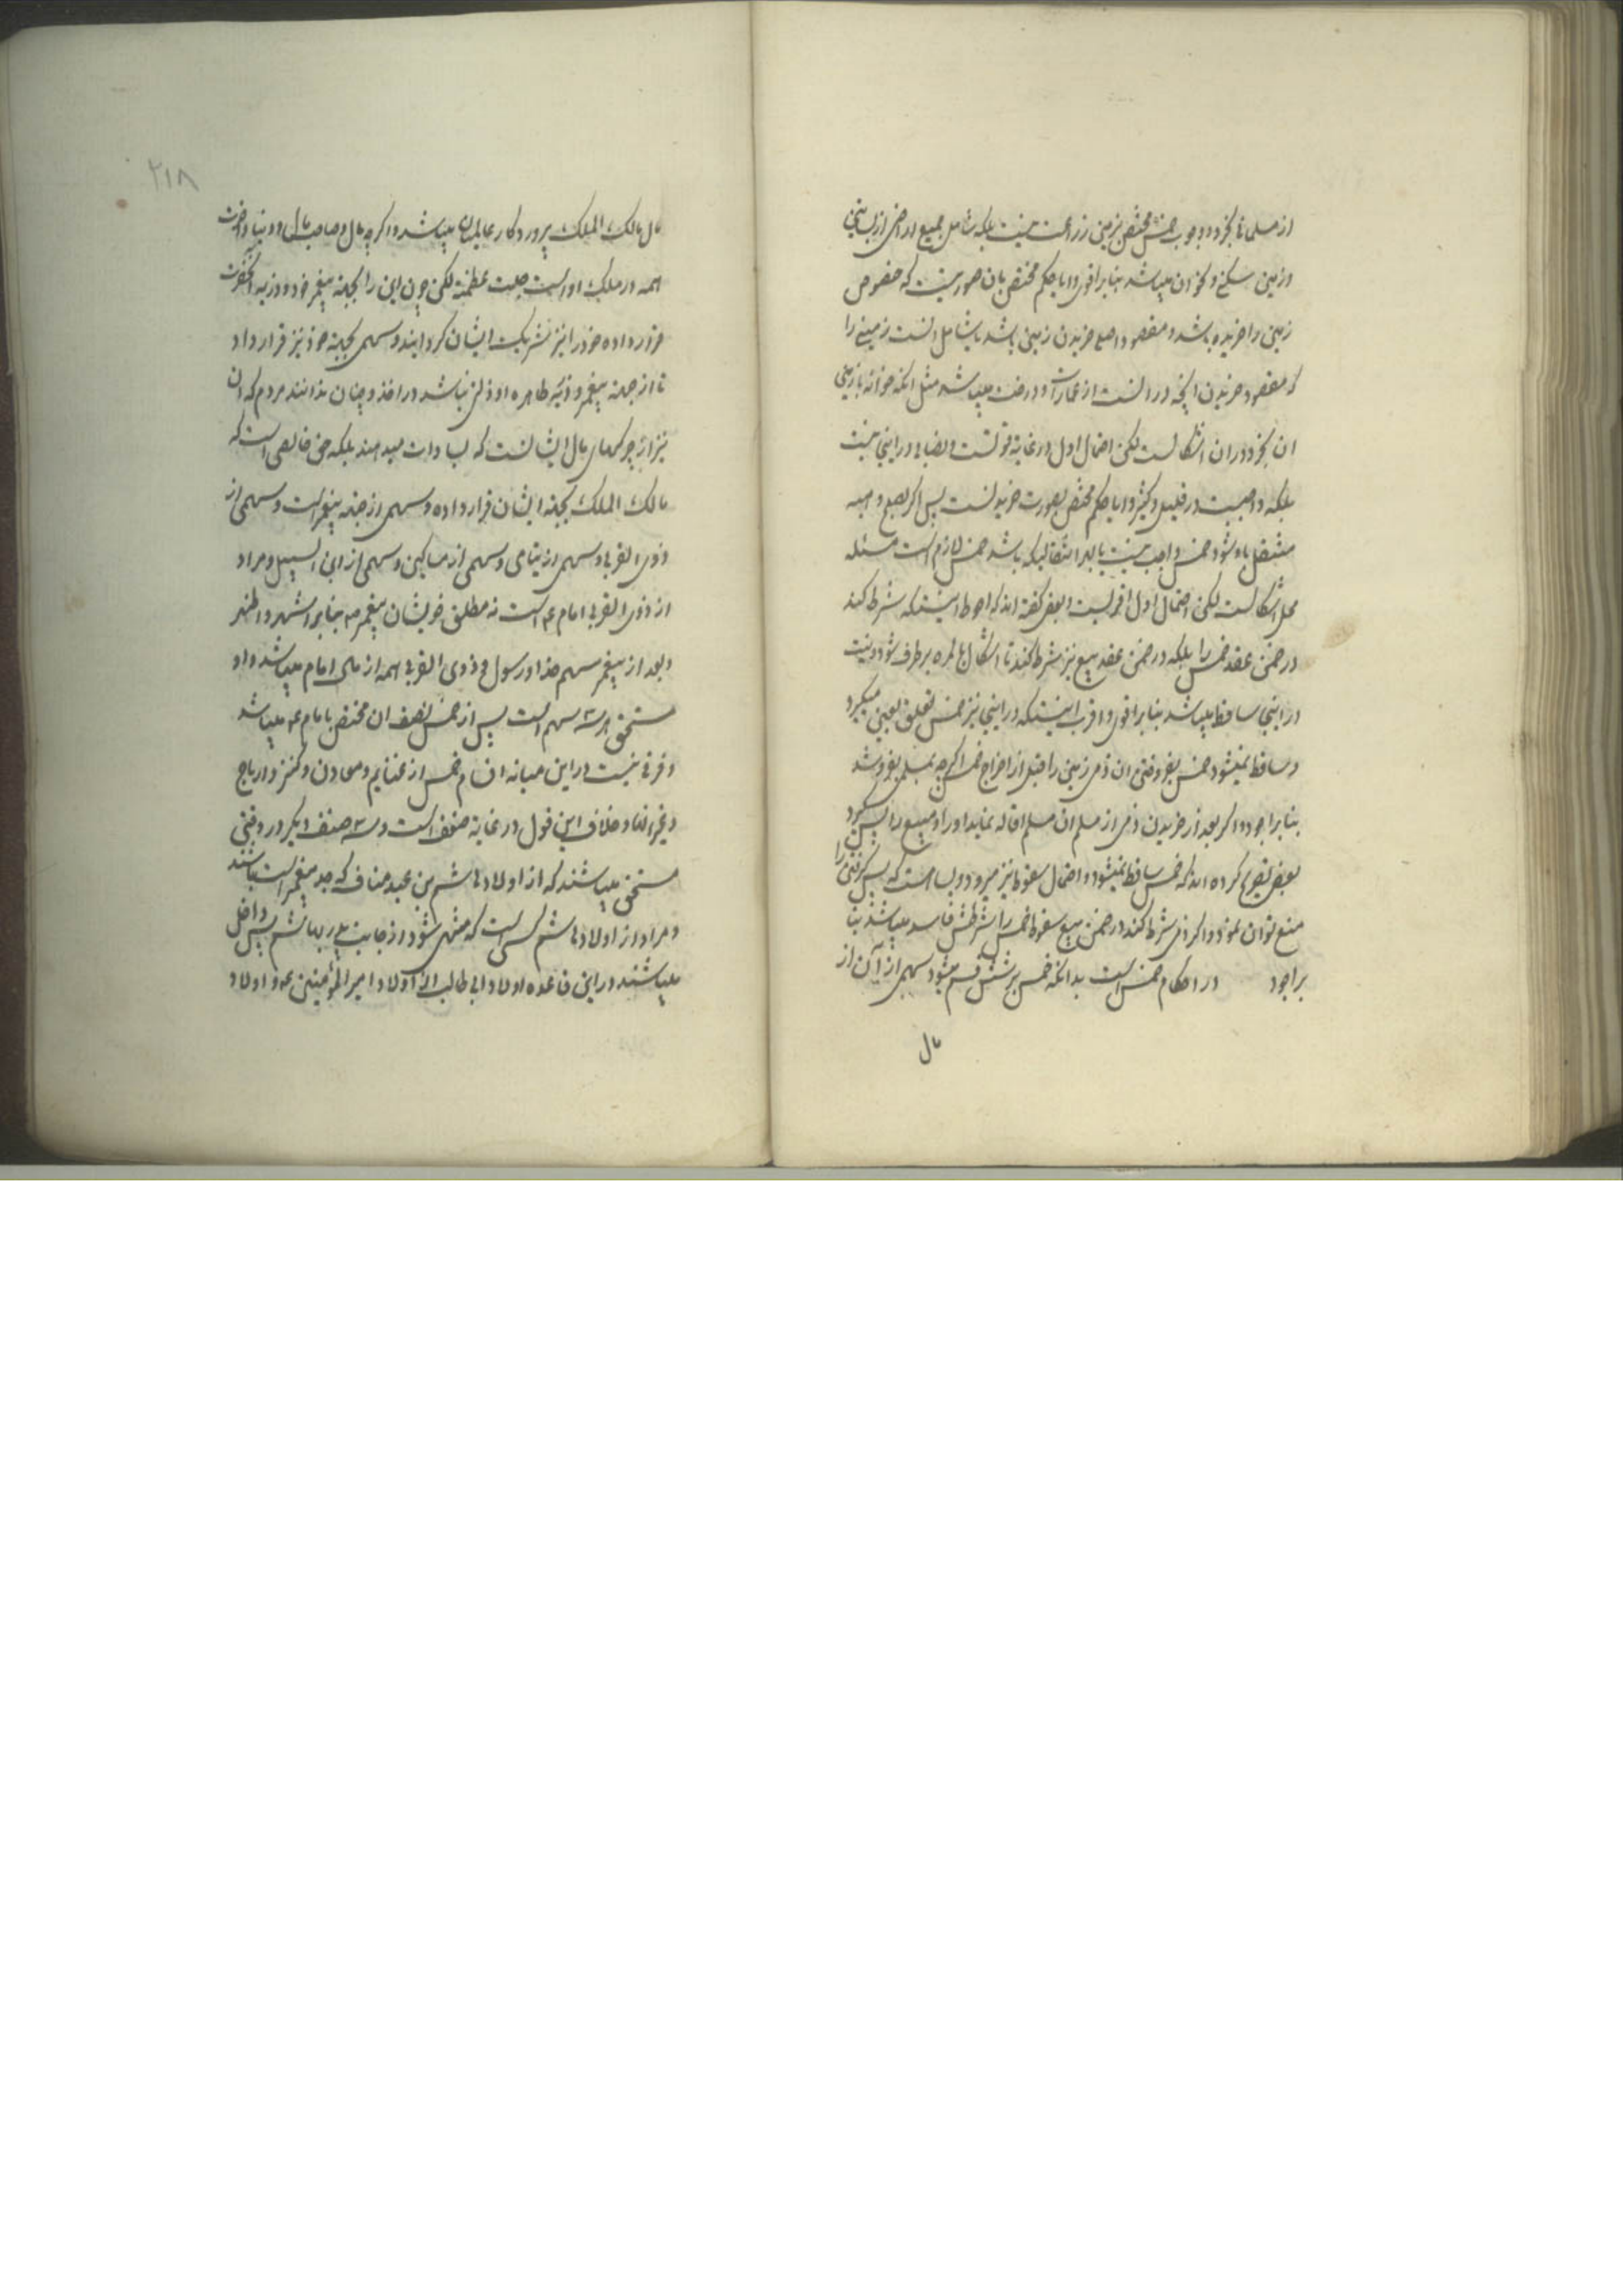 از مسلمانی بخرد و وجوب خمس مختص بزمین زراعت نیست بلکه شامل جمیع اراضی از بساتین
و زمین سکنی و نحو ان میباشد بنابر اقوی و ایا حکم مختص بان صورتیست که خصوص
زمین را خریده باشد و مقصود اصلی خریدن زمین باشد یا شامل است زمینی را
که مقصود خریدن انچه در انست از عمارت و درخت میباشد مثل انکه خوانه با زمین
ان بخرد در ان اشکالست لکن احتمال اول در غایة قوتست و نصابی در اینجا نیست
بلکه واجبست در قلیل و کثیر و ایا حکم مختص بصورت خریدنست پس اگر بصلح و هبه
منتقل باو شود خمس واجب نیست یا بهر انتقالیکه باشد خمس لازم است مسئله
محل اشکالست لکن احتمال اول اقربست و بعضی گفته اند که احوط اینستکه شرط کند
در ضمن عقد خمس را بلکه در ضمن عقد بیع نیز شرط کند تا اشکال بالمره برطرف شود و نیت
در اینجا ساقط میباشد بنابر اقوی و اقرب اینستکه در اینجا نیز خمس تعلق بعین میگیرد
و ساقط نمیشود خمس بفروختن ان ذمی زمین را قبل از اخراج خمس اگرچه بمسلمی بفروشد
بنابر اجود و اگر بعد از خریدن ذمی از مسلم ان مسلم اقاله نماید او را و مبیع را پس گیرد
بعضی تصریح کرده اند که خمس ساقط نمیشود و احتمال سقوط نیز میرود و بسا هست که پس گرفتن را
منع توان نمود و اگر ذمی شرط کند در ضمن بیع سقوط خمس را شرطش فاسد میباشد بنا
بر اجود در احکام خمس است بدانکه خمس بر شش قسم میشود سهمی از آن از
مال
۲۱۸
مال مالک الملک پروردگار عالمیان میباشد و اگرچه مال و صاحب مال و دنیا و اخرت
همه در ملک اوست جلت عظمته لکن چون این را بجهة پیغمبر خود و ذریه انحضرت
قرار داده خود را نیز شریک ایشان گردانید و سهمی بجهة خود نیز قرار داد
تا از جهة پیغمبر و ذریه طاهره او ذلتی نباشد در اخذ و چنان ندانند مردم که ان
نیز از چرکهای مال ایشانست که بسادات میدهند بلکه حق خالصی است که
مالک الملک بجهة ایشان قرار داده و سهمی از جهة پیغمبر است و سهمی از
ذوی القربی و سهمی از یتامی و سهمی از مساکین و سهمی از ابن السبیل و مراد
از ذوی القربی امام ع است نه مطلق خویشان پیغمبر ص بنابر اشهر و اظهر
و بعد از پیغمبر سهم خدا و رسول و ذوی القربی همه از مال امام میباشد و او
مستحق هر سه سهم است پس از خمس نصف ان مختص بامام ع میباشد
و فرقی نیست در این میانه اقسام خمس از غنایم و معادن و کنز و ارباح
و غیر انها و خلاف این قول در غایة ضعف است و سه صنف دیگر در وقتی
مستحق میباشند که از اولاد هاشم بن عبد مناف که جد پیغمبر است باشند
و مراد از اولاد هاشم کسی است که منتهی شود از جانب پدر بهاشم پس داخل
میباشند در این قاعده اولاد ابی طالب از اولاد امیر المؤمنین ع و اولاد